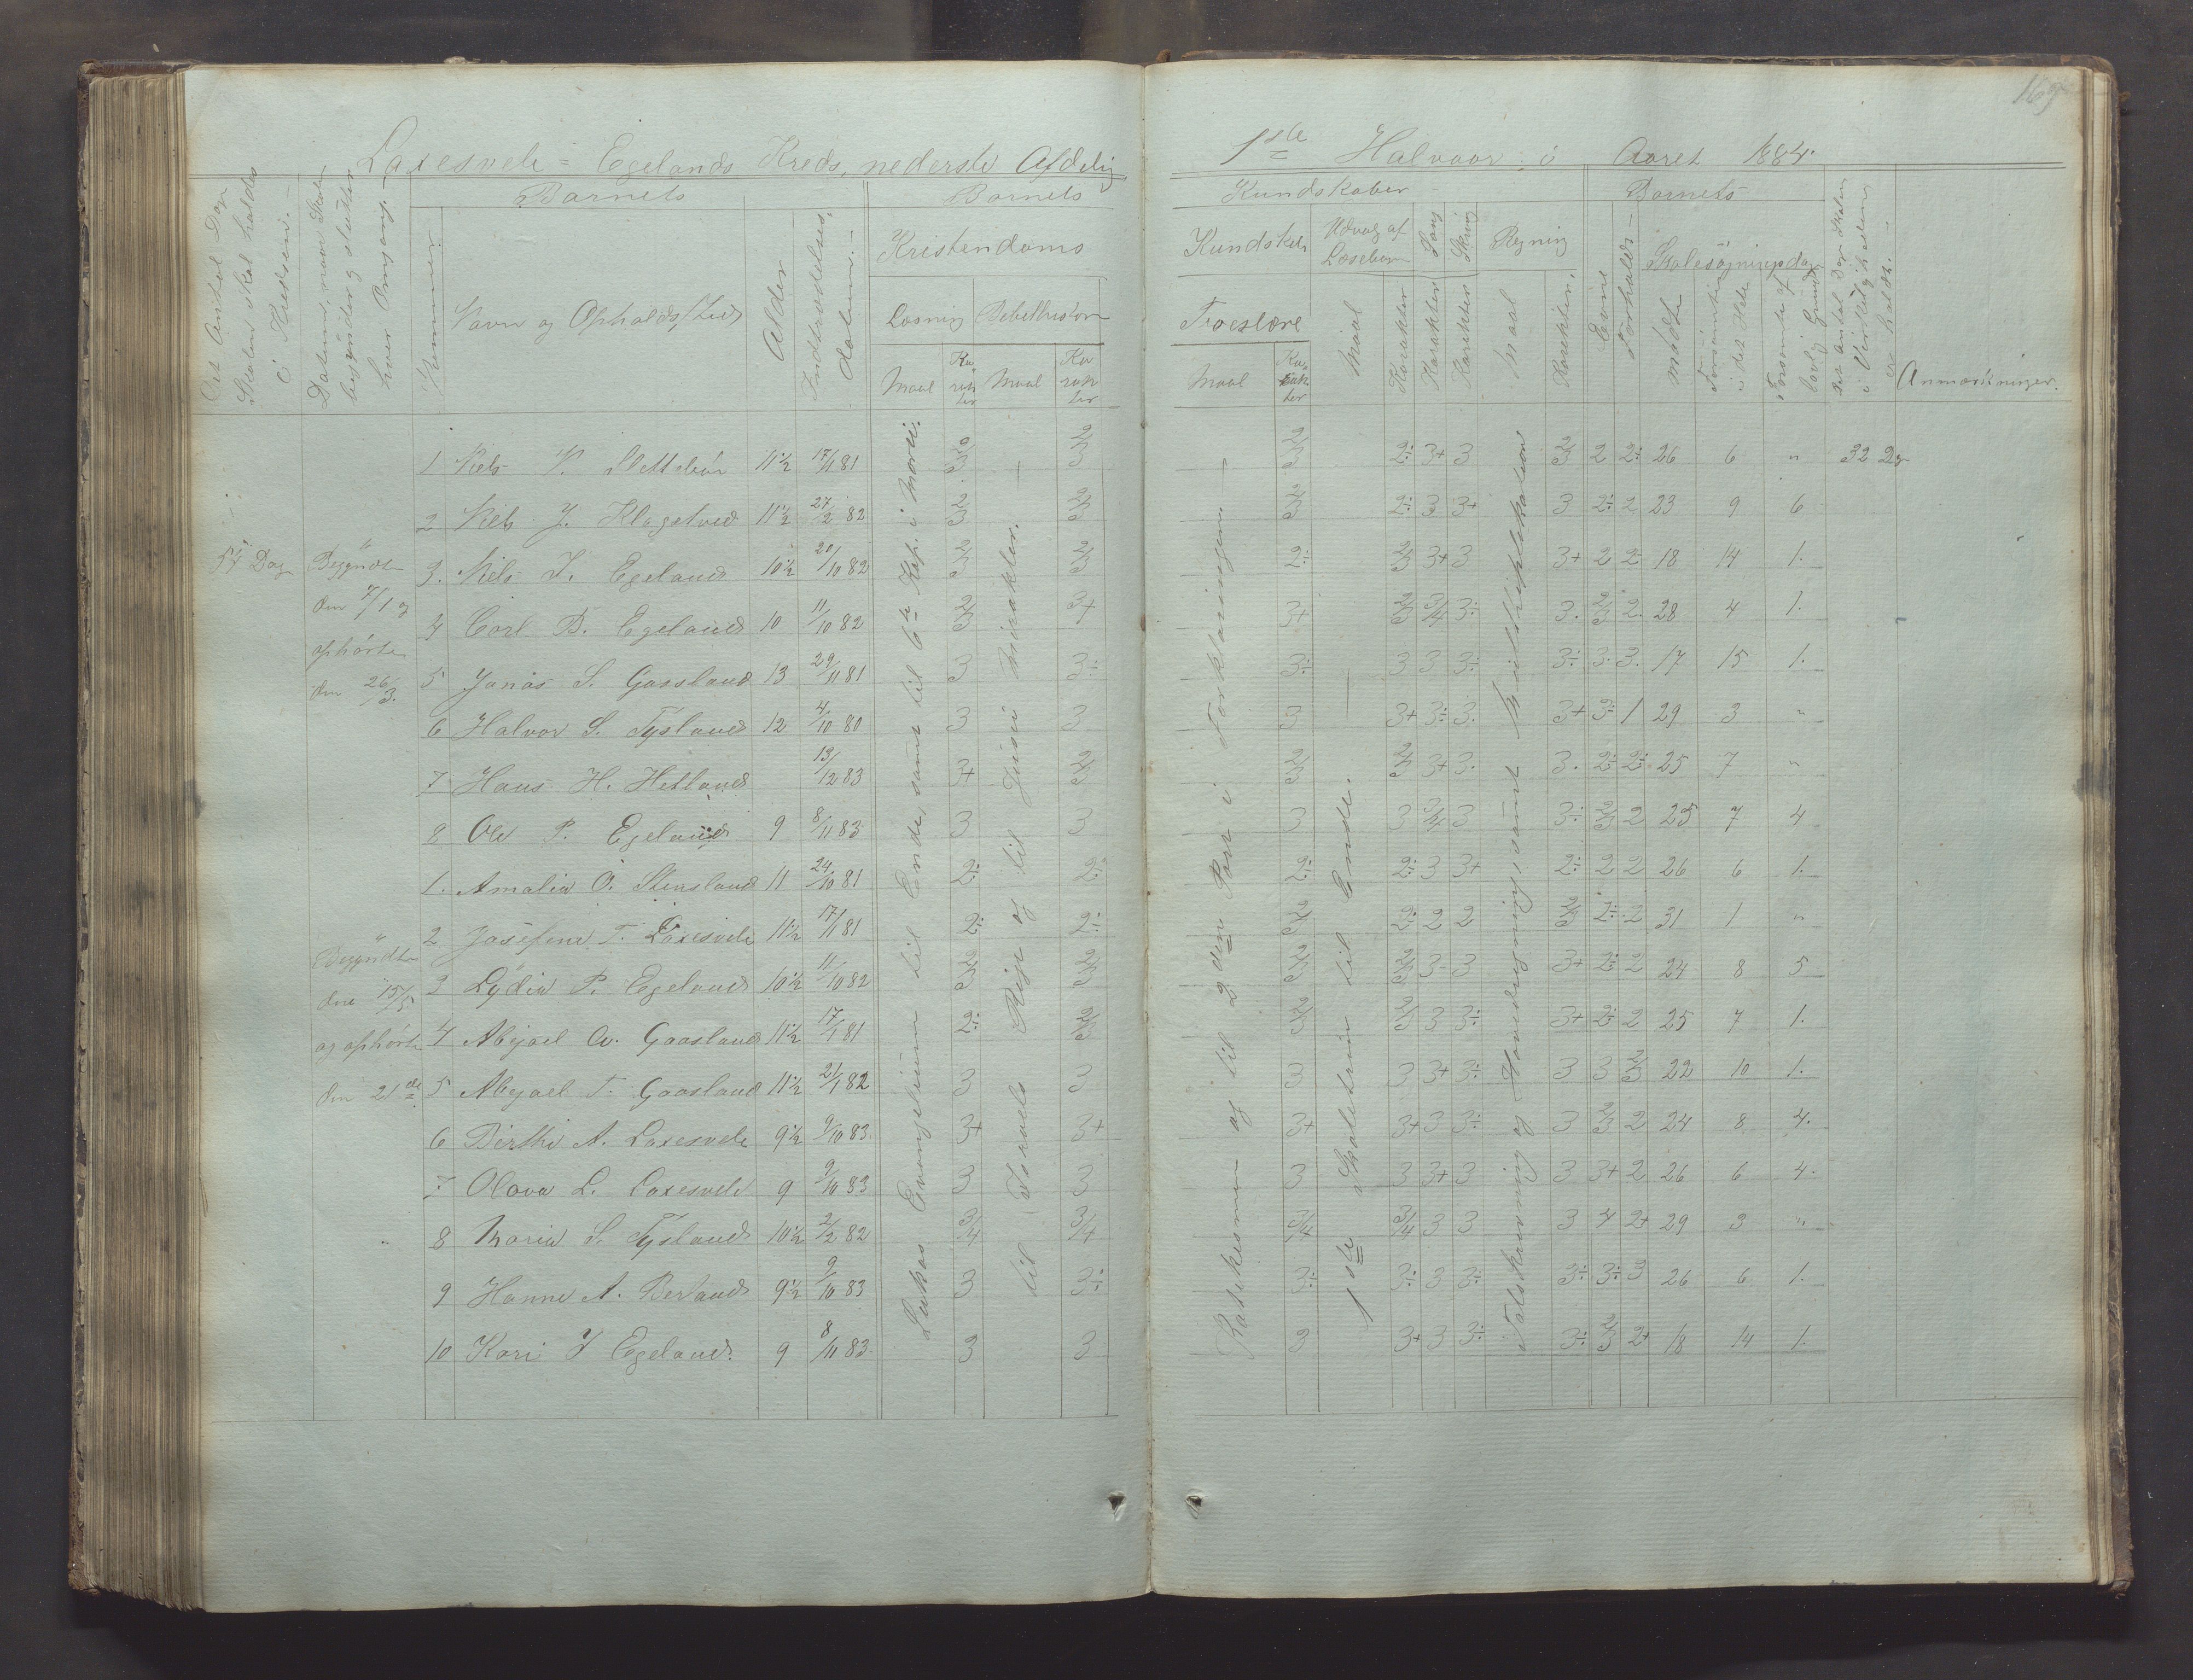 169
Laxesvele = Egelands Kreds, nederste Afdeling
1ste Halvaar i Aaret 1884.
Det Antal Dage Skolen skal holdes i Kredsen. -
Datum, naar Skolen begynder og slutter hver Omgang. -
Barnets
Nummer.
Navn og Opholds/Sted
Alder
Indtrædelses-datum. -
Barnets
Kristendoms
Læsning
Bibelhistorie
Maal
Karakter
Maal
Karakter
Kundskaber
Kundskab
Troeslære
Maal
Karakter
Udvalg af Læsebogen
Maal
Karakter
Sang
Karakter
Skrivning
Karakter
Regning
Maal
Karakter.
Barnets
Evne
Forholds -
Skolesøgningsdage
mødt
Forsømte i det Hele
Forsømte af lovlig Grund
Det antal Dage Skolen i Virkeligheden er holdt. -
Anmærkninger.
54 Dag
Begyndte
den 7/1 og
ophørte
den 26/3.
Begyndte
den 15/5
og ophørte
den 21de
Lukas Evangelium til Ende, samt til 6te Kap. i
til Israels Rige og til Jesu Mirakler. -
Katekismen og til 2den Part i Forklaringen -
1ste Skoletrin til Ende. -
Talskrivning og Hovedregning, samt Multiplikation
1 Niels Slettebø 11½ 17/1 81 2/3 2/3 2/3 2÷ 3+ 3 2/3 2 2÷ 26 6 " 32 Dg
2 Niels J. Klogetved 11½ 27/2 82 2/3 2/3 2/3 2÷ 3 3+ 3 2÷ 2 23 9 6
3. Niels J. Egeland 10½ 20/10 82 2/3 2/3 2÷ 2/3 3+ 3 3+ 2 2 18 14 1.
4 Carl B. Egeland 10 11/10 82 2/3 3+ 3+ 2/3 3/4 3÷ 3. 2/3 2. 28 4 1.
5 Jonas S. Gaasland 13 29/11 81 3 3÷ 3÷ 3 3 3÷ 3÷ 3. 3. 17 15 1.
6 Halvor S. Tysland 12 4/10 80 3 3 3 3+ 3÷ 3. 3+ 3÷ 1 29 3 "
7 Hans H. Hetland 13/12 83 3+ 2/3 2/3 2/3 3+ 3. 3. 2÷ 2÷ 25 7 "
8 Ole P. Egeland 9 8/11 83 3 3 3 3 3/4 3 3÷ 2/3 2 25 7 4
1. Amalia O. Stensland 11 24/10 81 2÷ 2÷ 2÷ 2÷ 3 3+ 2÷ 2 2 26 6 1.
2 Josefine T. Laxesvele 11½ 17/1 81 2÷ 2÷ 2/3 2÷ 2 2 2/3 2÷ 2 31 1 "
3 Lydia P. Egeland 10½ 11/10 82 2/3 2/3 2/3 2/3 3- 3 3+ 2÷ 2 24 8 5
4 Abigael A. Gaasland 11½ 17/1 81 2÷ 2/3 2/3 2/3 3 3÷ 3+ 2÷ 2 25 7 1.
5 Abigael T. Gaasland 11½ 21/1 82 3 3 3 3 3+ 3÷ 3 3 2/3 22 10 1.
6 Birthe A. Laxesvele 9½ 9/10 83 3+ 3+ 3+ 3+ 3 3÷ 3 2/3 2 24 8 4.
7 Olava L. Laxesvele 9 9/10 83 3 3 3 3 3+ 3 3 3+ 2 26 6 4.
8 Maria S. Tysland 10½ 2/2 82 3/4 3/4 3/4 3/4 3 3 3 4 2+ 29 3 "
9 Hanne A. Berland 9½ 9/10 83 3 3÷ 3÷ 3÷ 3 3÷ 3÷ 3÷ 3 26 6 1.
10 Kari J Egeland. 9 8/11 83 3 3 3 3+ 3 3÷ 3÷ 2/3 2+ 18 14 1.